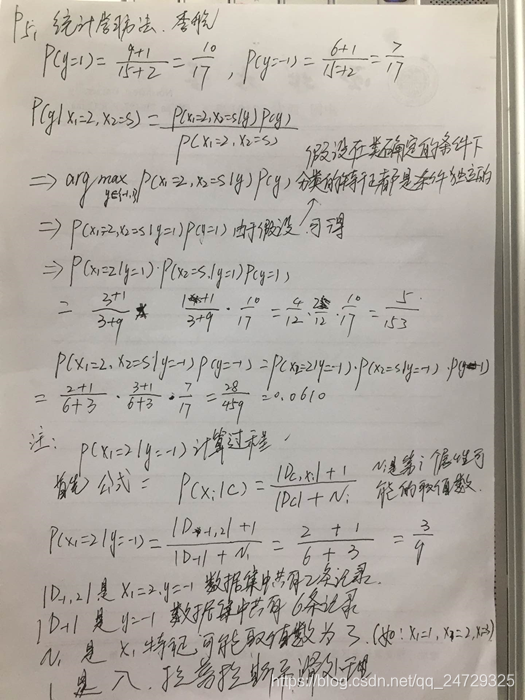 P51 统计学习方法. 李航
P(y=1) = \frac{9+1}{15+2} = \frac{10}{17} , P(y=-1) = \frac{6+1}{15+2} = \frac{7}{17}
P(y|x1=2, x2=s) = \frac{P(x1=2, x2=s|y) P(y)}{P(x1=2, x2=s)}
假设在类确定的条件下
⇒ arg max_{y∈{-1,1}} P(x1=2, x2=s|y) P(y) 分类的特征都是条件独立的
⇒ P(x1=2, x2=s|y=1) P(y=1) 由于假设 可得
⇒ P(x1=2|y=1) · P(x2=s|y=1) P(y=1)
= \frac{3+1}{3+9} · \frac{1+1}{3+9} · \frac{10}{17} = \frac{4}{12} · \frac{2}{12} · \frac{10}{17} = \frac{5}{153}
P(x1=2, x2=s|y=-1) P(y=-1) = P(x1=2|y=-1) · P(x2=s|y=-1) · P(y=-1)
= \frac{2+1}{6+3} · \frac{3+1}{6+3} · \frac{7}{17} = \frac{28}{459} = 0.0610
注: P(x1=2|y=-1) 计算过程
首先 公式 = P(xi|C) = \frac{|Dc,xi| + 1}{|Dc| + Ni} Ni是第i个属性可
能的取值数.
P(x1=2|y=-1) = \frac{|D-1,2| + 1}{|D-1| + Ni} = \frac{2 + 1}{6 + 3} = \frac{3}{9}
|D-1,2| 是 x1=2, y=-1 数据集中共有2条记录.
|D-1| 是 y=-1 数据集中共有 6条记录
Ni 是 x1 特征可能取值数为 3. (如: x1=1, x1=2, x1=3)
1 是 λ. 拉普拉斯平滑处理
https://blog.csdn.net/qq_24729325